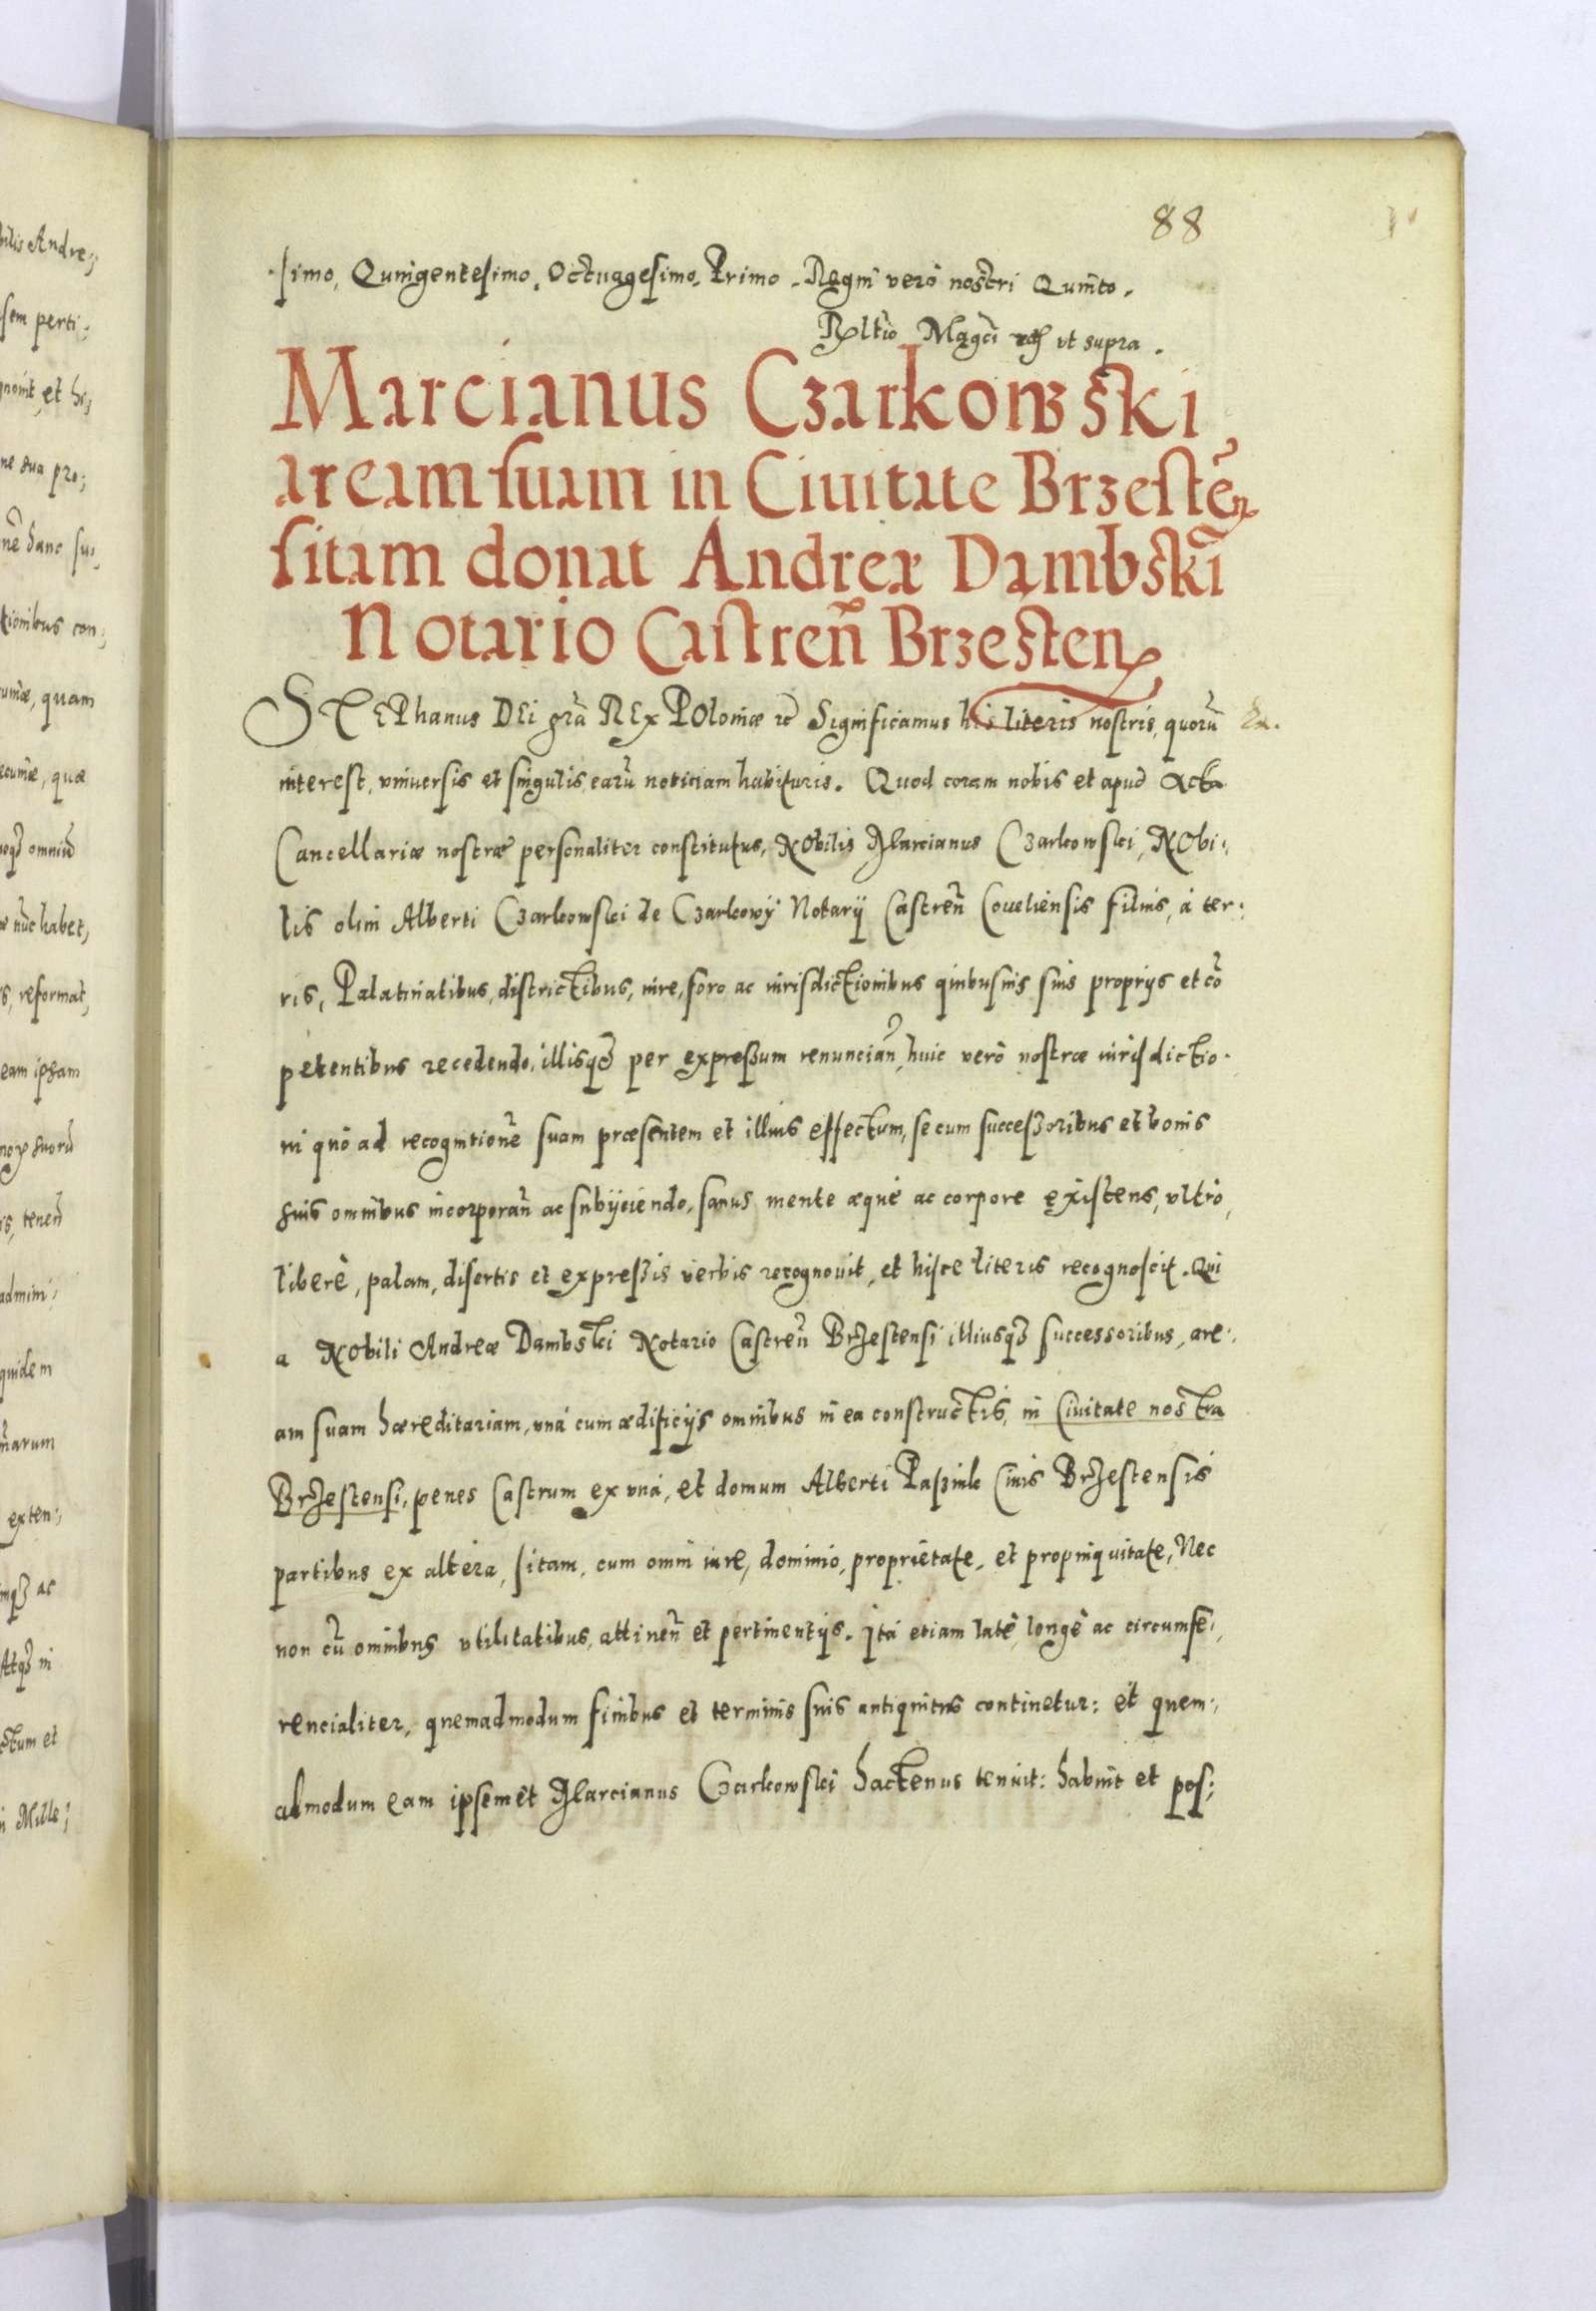 88
simo, Quingentesimo, Octuagesimo, Primo. Regni verò nostri Quinto.
Rltio Magci ut supra.
Marcianus Czarkowski
aream suam in Ciuitate Brzesteñ
sitam donat Andreæ Dambski
Notario Castreñ Brzesten
STEPhanus DEi grã REx POloniæ &c Significamus his literis nostris, quorũ
interest, vniuersis et singulis, earũ noticiam habituris. Quod coram nobis et apud Acta
Cancellariæ nostræ personaliter constitutus, NObilis Marcianus Czarkowski, NObi:
lis olim Alberti Czarkowski de Czarkowy Notarij Castreñ Coueliensis filius, à ter:
ris, Palatinatibus, districtibus, iure, foro ac iurisdictionibus quibusuis suis proprijs et cõ
petentibus recedendo, illisq3 per expressum renunciañ, huic verò nostræ iurisdictio.
ni quò ad recognitionẽ suam præsentem et illius effectum, se cum successoribus et bonis
suis omnibus incorporañ ac subijciendo, sanus mente æquè ac corpore existens, vltrò,
liberè, palam, disertis et expressis verbis recognouit, et hisce literis recognoscit. Qui
a NObili Andreæ Dambski Notario Castreñ Brzestensi illiusq3 successoribus, are:
am suam hæreditariam, vná cum ædificijs omnibus in ea constructis, in Ciuitate nostra
Brzestensi, penes Castrum ex vná, et domum Alberti Paszink Ciuis Brzestensis
partibus ex altera, sitam, cum omni iure, dominio, proprietate, et propinquitate, Nec
non cũ omnibus vtilitatibus, attineñ et pertinentijs. Ità etiam latè, longè ac circumfe:
rencialiter, quemadmodum finibus et terminis suis antiquitus continetur: et quem:
admodum eam ipsemet Marcianus Czarkowski hactenus tenuit: habuit et pos: